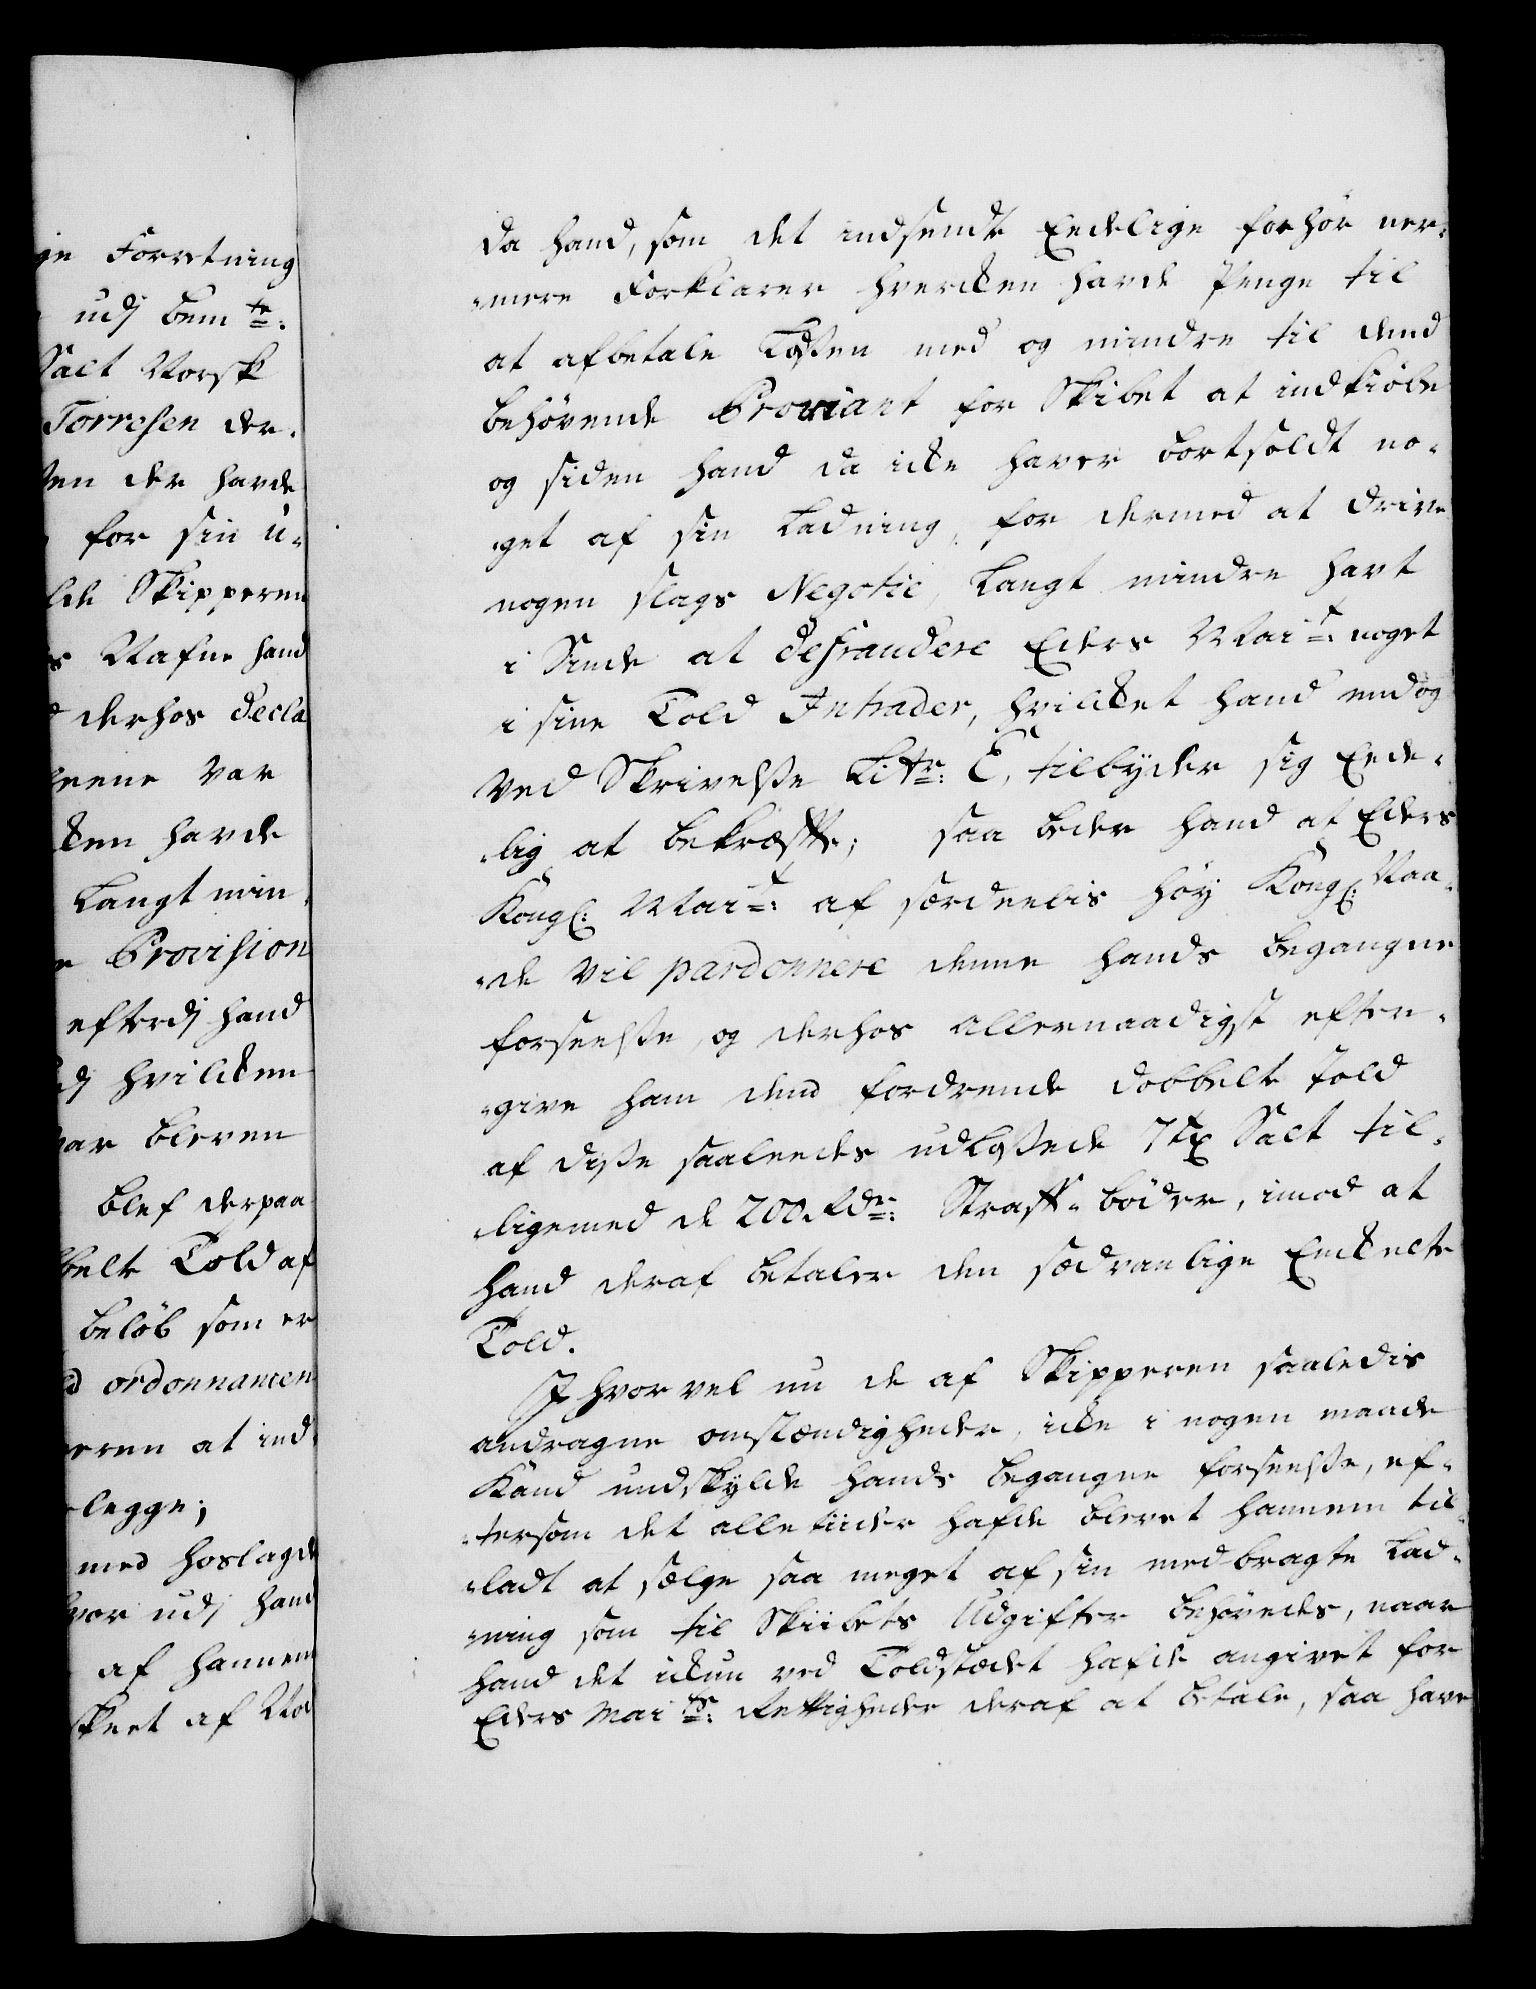 ge Forretning
udj bem te:
Salt Norsk
Torresen der-
en der havde
for sin u-
lde Skipperen
s Nafne hand
derhos decla
eene var
ken havde
Langt min-
e Provision
efterdj hand
dj hvilcken
var bleven
blef derpaa
belt Told af
beløb som er
d ordonnancen
eren at ind-
-legge;
med hoslagde
hvor udj hand
af hannem
skeet af Mod
da hand, som det indsendte Eedelige forhör ner-
-mere Forklarer hvercken havde Penge til
at afbetale Losßen med og mindre til dend
behövende Proviant for Skibet at indkiöbe
og siden hand da icke haver bortsoldt no-
-get af sin Ladning, for dermed at drive
nogen slags Negotie, Langt mindre havt
i Sinde at defraudere Eders Mai t: noget
i sine Told Intrader, hvilcket hand end og
ved Skrivelße Litr: E, tilbyder sig Eede-
-lig at bekræffte; saa beder hand at Eders
Kongl: Mai t: af særdeelis höy Kongl: Naa-
-de vil pardonnere denne hands begangne
forseelße, og derhos allernaadigst efter-
-give ham dend fordrende dobbelt Told
af diße saaleedes udloßede 7 Tr Salt til-
-ligemed de 200 Rdr: Straff-böder, imod at
hand deraf betaler den sædvanlige Enckelte
Told.
I hvor vel nu de af Skipperen saaledis
andragne omstændigheder, icke i nogen maade
Kand undskylde hands begangne forseelße, ef-
-tersom det alletiider hafde blevet hannem til-
-ladt at sælge saa meget af sin medbragte Lad-
-ning som til Skiibets Udgifter behövedes, naar
hand det ickun ved Toldstædet hafde angivet for
Eders Mai ts: Rettigheder deraf at betale, saa have